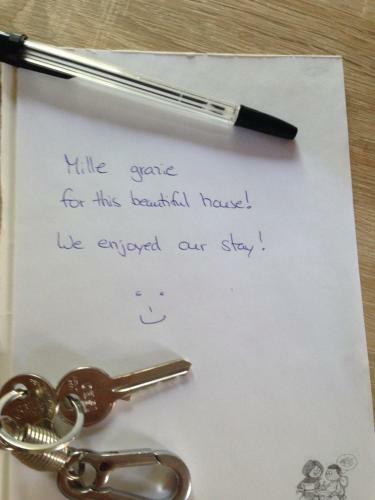 Mille grazie
for this beautiful house!
We enjoyed our stay!